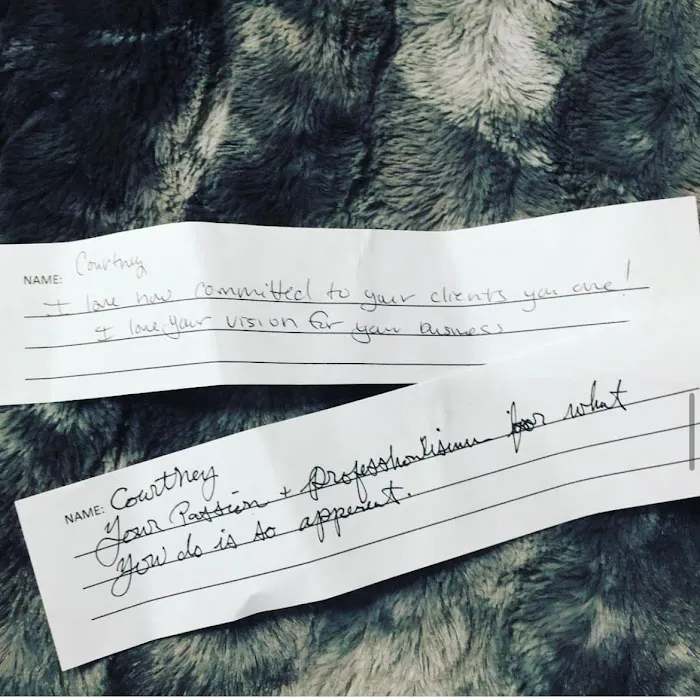 NAME: Courtney
I love how committed to your clients you are!
I love your vision for your business
NAME: Courtney
Your Passion + professionalism for what
You do is so apparent.